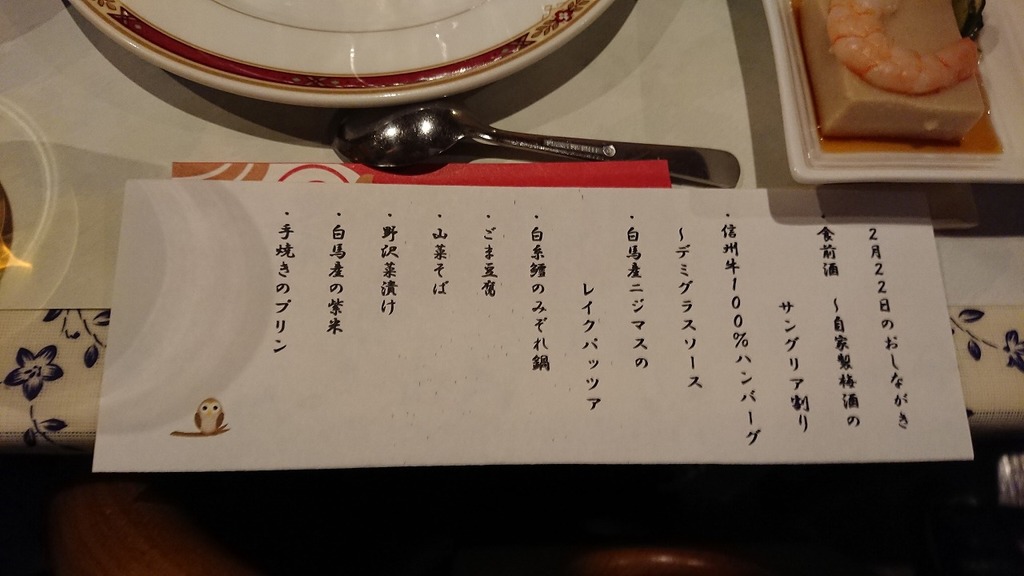 2月22日のおしながき
・食前酒　～自家製梅酒の
サングリア割り
・信州牛100%ハンバーグ
～デミグラスソース
・白馬産ニジマスの
レイクパッツァ
・白糸鱈のみぞれ鍋
・ごま豆腐
・山菜そば
・野沢菜漬け
・白馬産の紫米
・手焼きのプリン